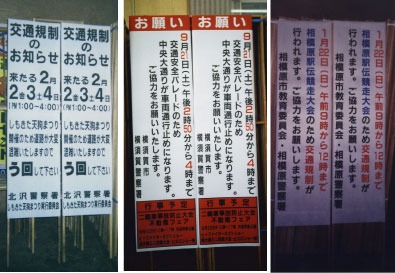 交通規制
の
お知らせ
来たる2月
2金3土4日
(PM1:00〜4:00)
しもきた天狗まつり
開催のため道路が大変
混雑いたしますので
う回して下さい
北沢警察署
しもきた天狗まつり実行委員会
交通規制
の
お知らせ
来たる2月
2金3土4日
(PM1:00〜4:00)
しもきた天狗まつり
開催のため道路が大変
混雑いたしますので
う回して下さい
北沢警察署
しもきた天狗まつり実行委員会
お願い
9月21日(土)午後2時50分から4時まで
交通安全パレードのため
中央大通りが車両通行止めになります。
ご協力をお願いいたします。
横須賀市
横須賀警察署
行事予定
二輪車事故防止大会
不動産フェア
お願い
9月21日(土)午後2時50分から4時まで
交通安全パレードのため
中央大通りが車両通行止めになります。
ご協力をお願いいたします。
横須賀市
横須賀警察署
行事予定
二輪車事故防止大会
不動産フェア
1月22日(日)午前9時から12時まで
相模原駅伝競走大会のため交通規制が
行われます。ご協力をお願いします。
相模原市教育委員会・相模原警察署
1月22日(日)午前9時から12時まで
相模原駅伝競走大会のため交通規制が
行われます。ご協力をお願いします。
相模原市教育委員会・相模原警察署